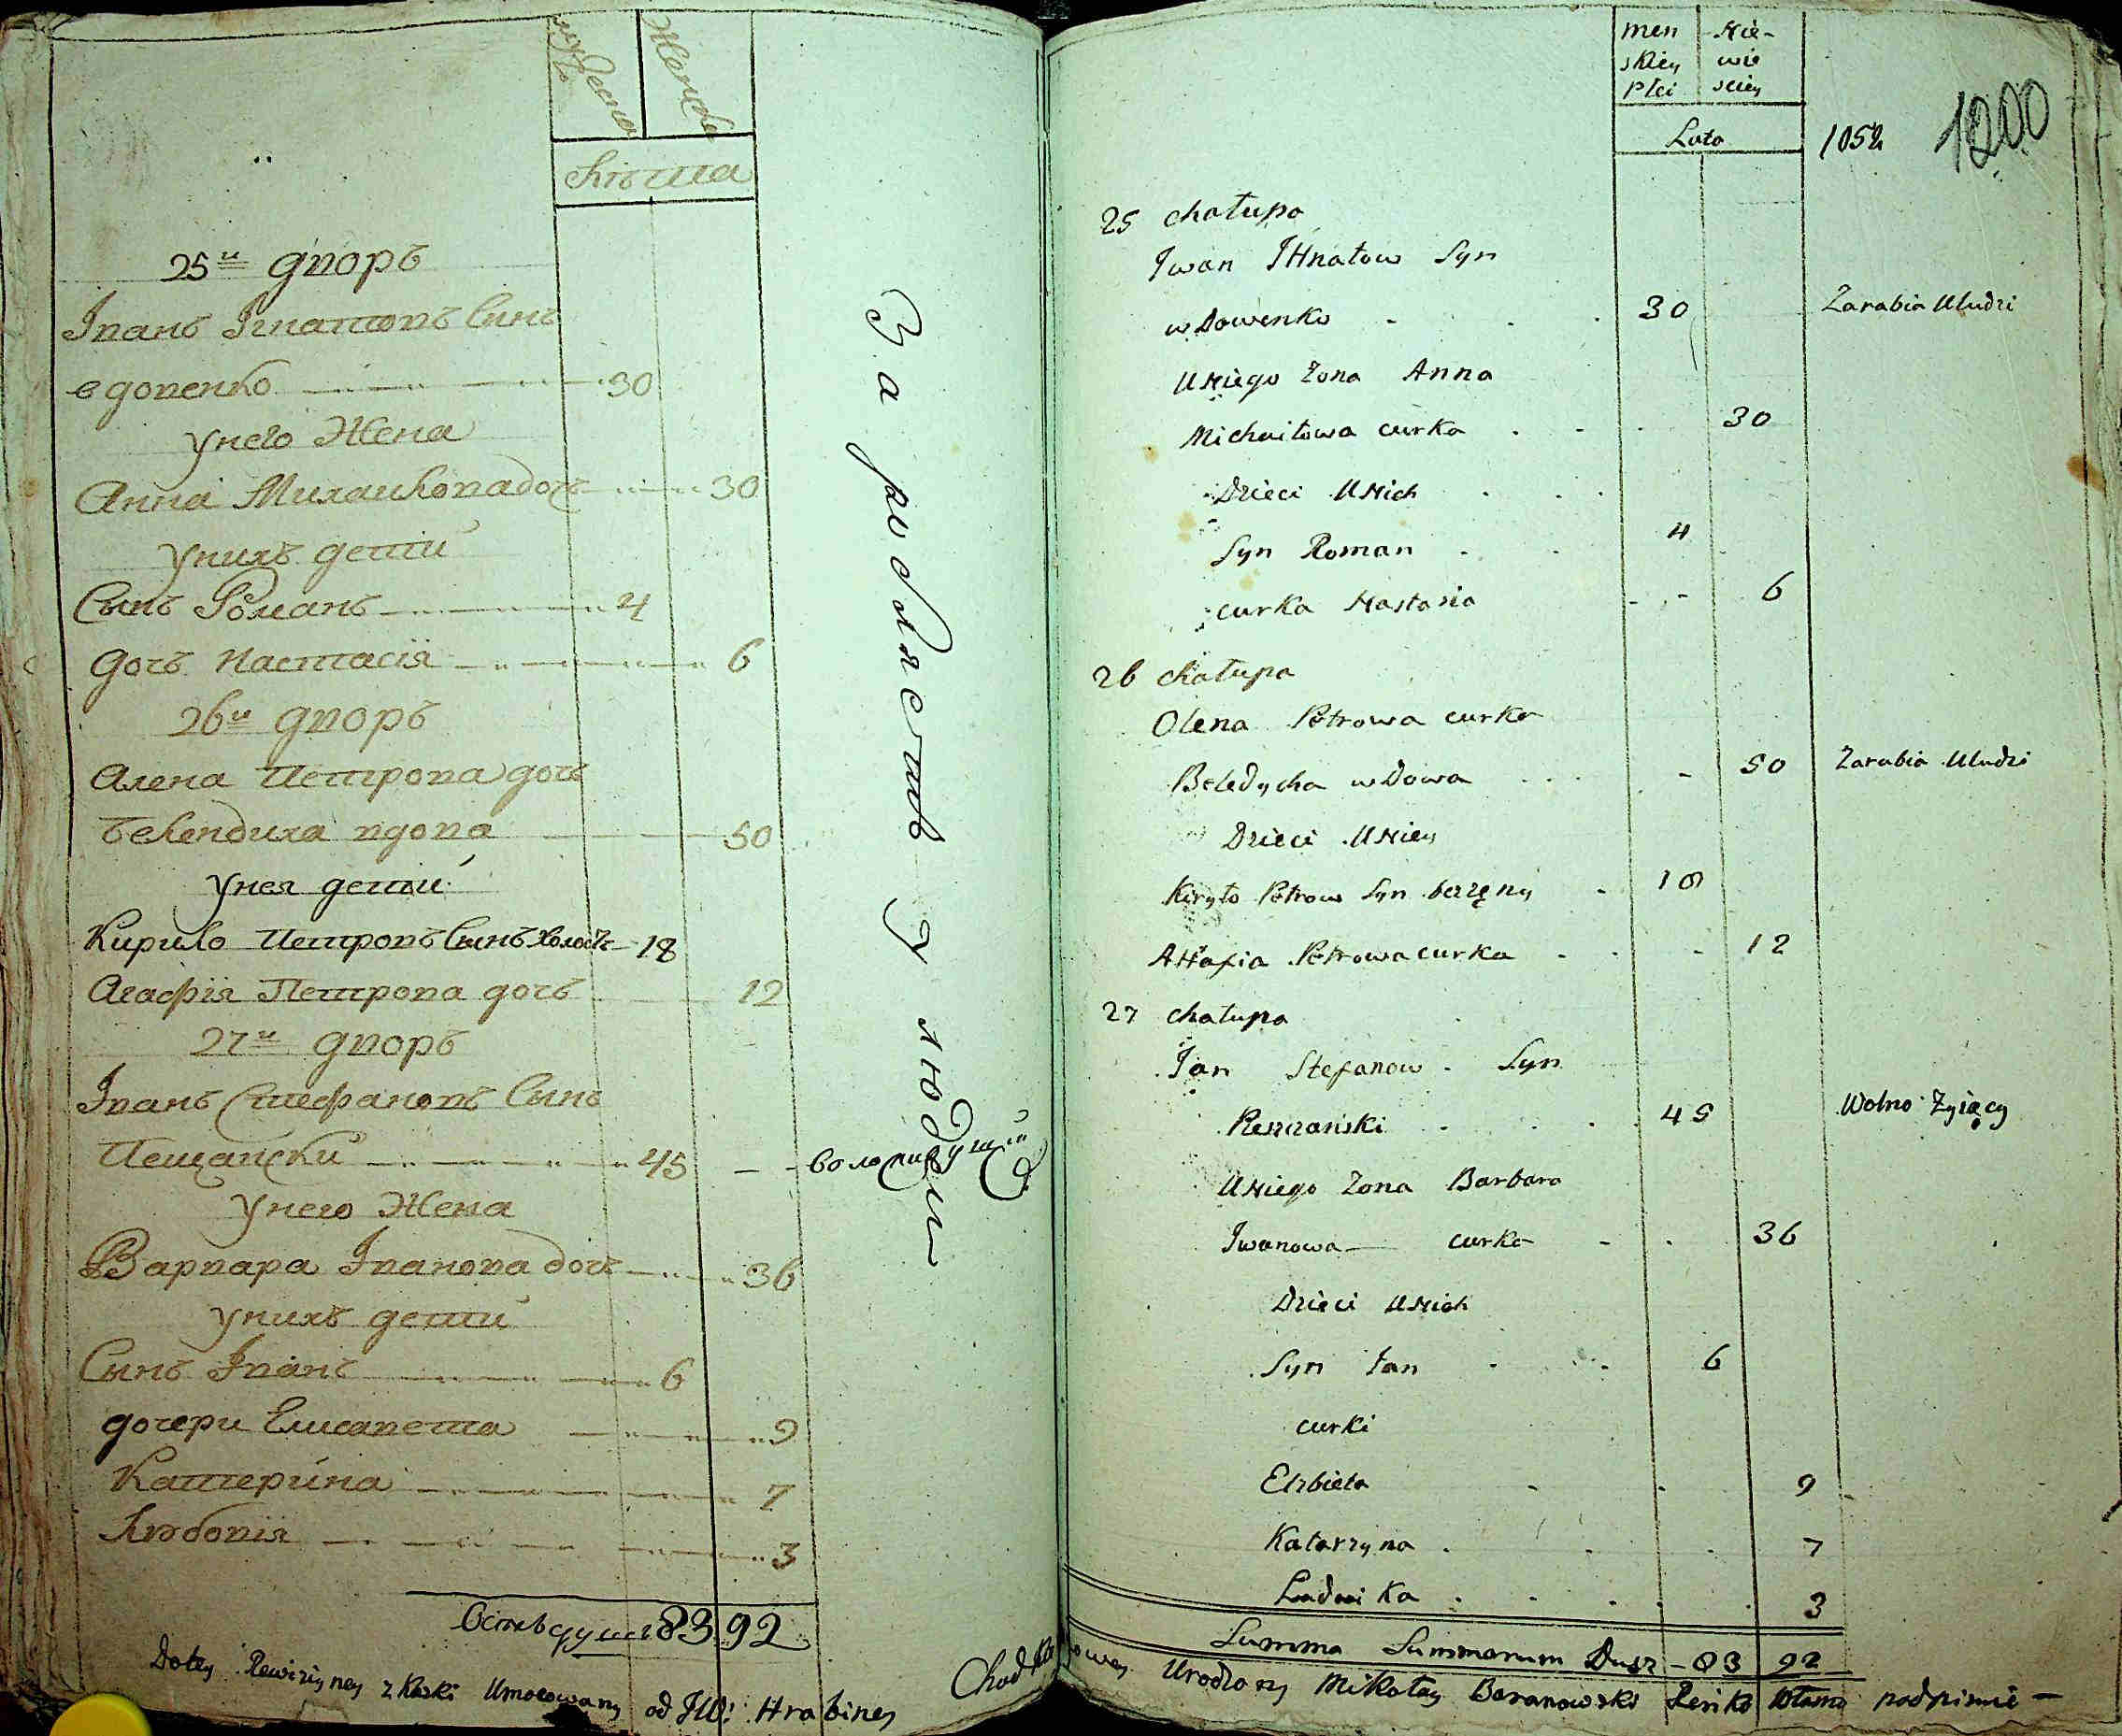 мужеска
Женска
Лѣта
25й дворъ
Іванъ Ігнатовъ Сынъ
вдовенко 30
Унего Жена
Анна Михайловадочь 30
Унихъ дети
Сынъ Романъ 4
дочь Настасія 6
26й дворъ
Алена Петровадочь
Белендиха вдова 50
Унея дети
Кирило Петровъ Сынъ холостъ 18
Агафія Петрова дочь 12
27й дворъ
Іванъ Стефановъ Сынъ
Пещански 45
Унего Жена
Варвара Іванова дочь 36
Унихъ дети
Сынъ Іванъ 6
дочери Елисавета 9
Катерина 7
Любовія 3
83 92
Заробляетъ у людей
men skiey Płci
Nie-wie sciey
Lata
1052
1200
25 chałupa
Iwan IHnatow Syn
wdowenko 30 Zarabia Uludzi
UNiego Żona Anna
Michaiłowa curka 30
Dzieci UNich
Syn Roman 4
curka Nastazia 6
26 chałupa
Olena Petrowa curka
Beledycha wdowa 50 Zarabia Uludzi
Dzieci UNiey
Kiryło Petrow Syn bezżęny 18
AHafia Petrowa curka 12
27 chałupa
Jan Stefanow Syn
Peszczański 45 Wolno Żyiący
UNiego Żona Barbara
Iwanowa curka 36
Dzieci UNich
Syn Jan 6
curki
Elzbieta 9
Katarzyna 7
Ludwika 3
Summa Summarum Dusz 83 92
Dotey Rewizyiney z Kaski Umocowany od JW: Hrabiney Chodkiewiczowey Urodzony Mikołay Baranowski Ręnką Własną podpisuie